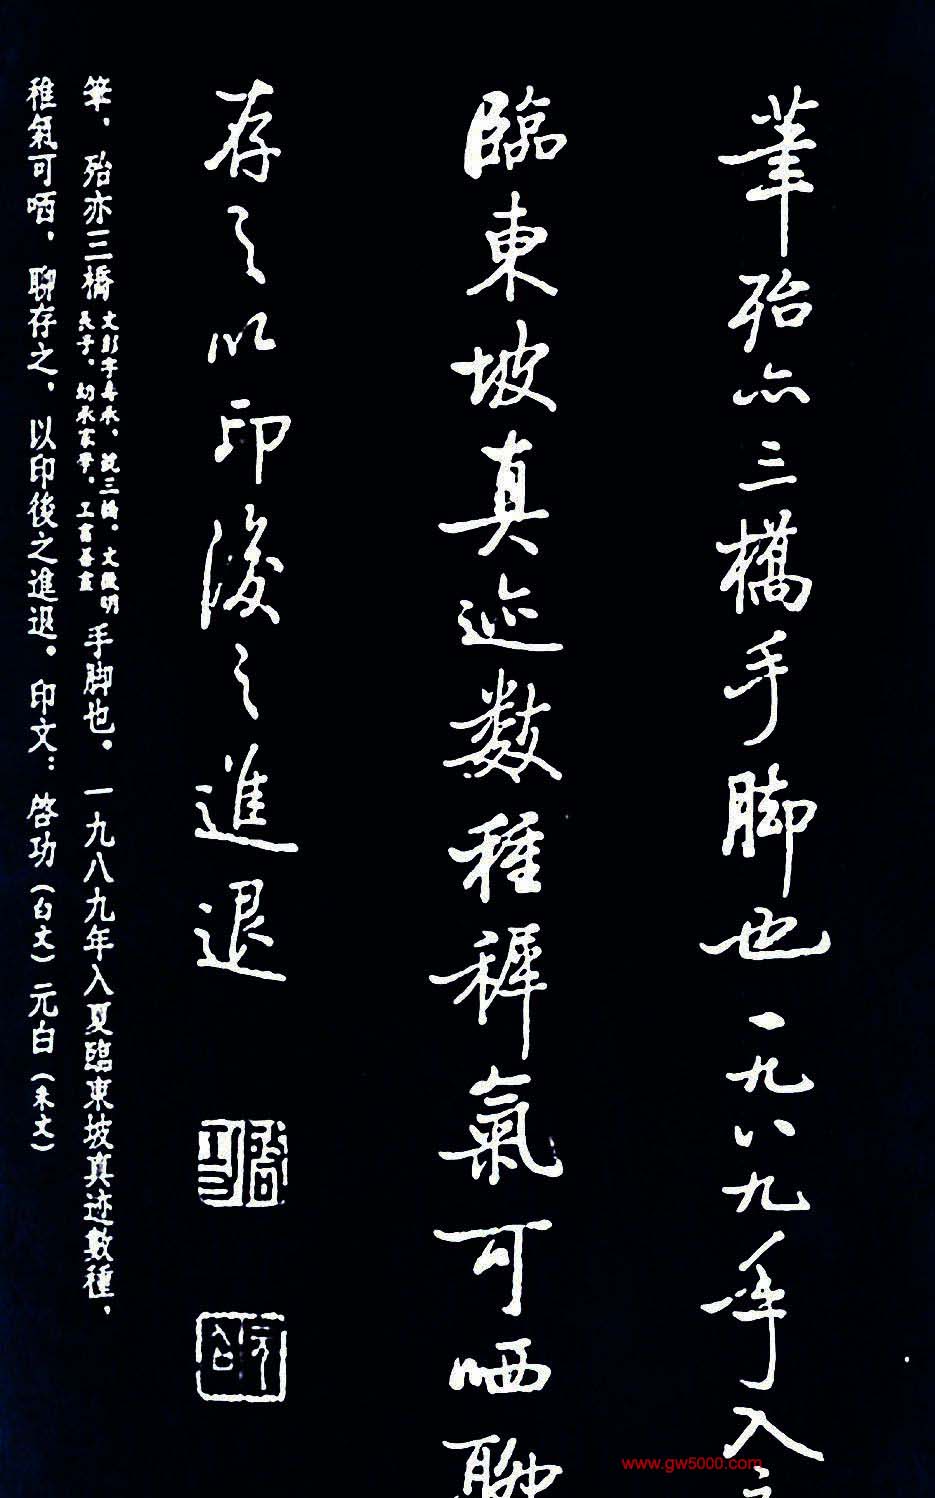 筆殆亦三橋手脚也一九八九年入
臨東坡真迹数種稺氣可哂聊
存之以印後之進退
啓功
元白
筆，殆亦三橋文彭字壽承，號三橋。文徵明長子，幼承家學，工書善畫手脚也。一九八九年入夏臨東坡真迹數種，
稚氣可哂，聊存之，以印後之進退。印文：啓功（白文）元白（朱文）
www.gw5000.com